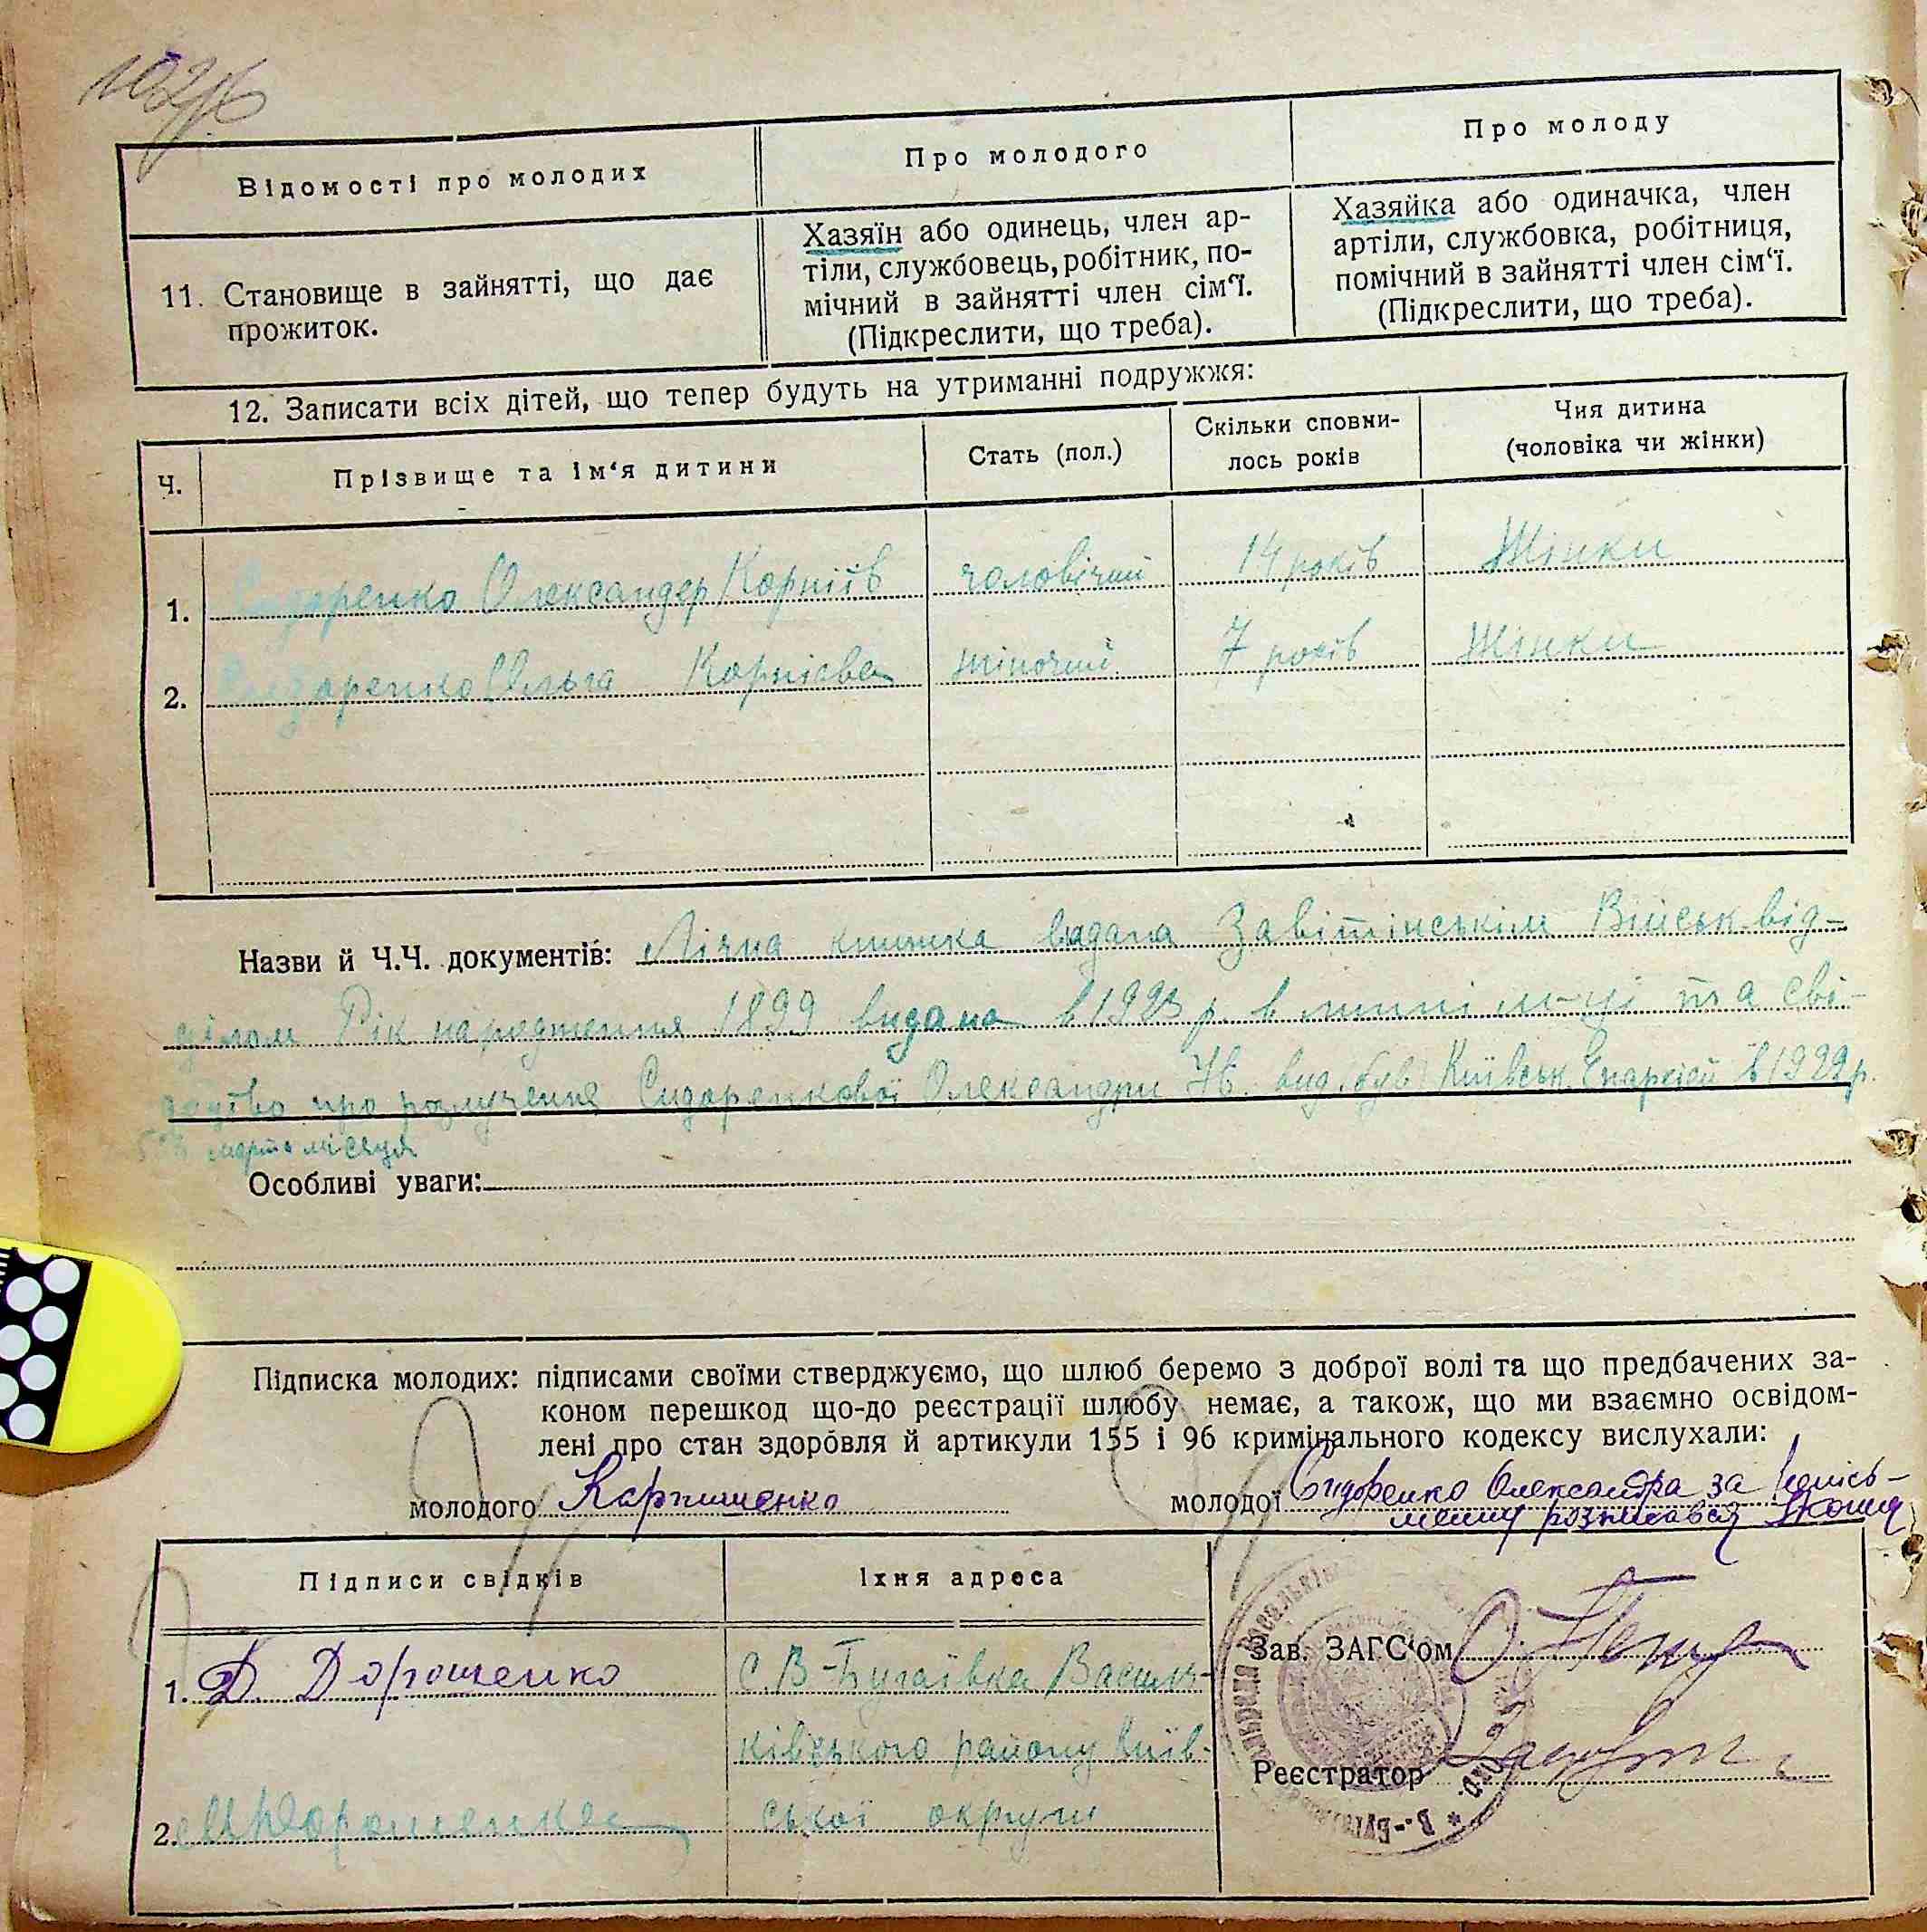 Відомості про молодих
Про молодого
Про молоду
11. Становище в зайнятті, що дає
прожиток.
Хазяїн або одинець, член ар-
тіли, службовець, робітник, по-
мічний в зайнятті член сім'ї.
(Підкреслити, що треба).
Хазяйка або одиначка, член
артіли, службовка, робітниця,
помічний в зайнятті член сім'ї.
(Підкреслити, що треба).
12. Записати всіх дітей, що тепер будуть на утриманні подружжя:
Ч.
Прізвище та ім'я дитини
Стать (пол.)
Скільки сповни-
лось років
Чия дитина
(чоловіка чи жінки)
1. Сидоренко Олександер Корніїв чоловічий 14 років Жінки
2. Сидоренко Ольга Корніева жіночий 7 років Жінки
Назви й Ч.Ч. документів: Лічна книжка видана Завітінськім Військвід-
ділом Рік народження 1899 видана в 1923 р. в липні м-ці та сві-
доцтво про розлучення Сидоренкової Олександри Н. вид. (був) Київськ. Епархієй в 1929 р.
марта місяця
Особливі уваги:
Підписка молодих: підписами своїми стверджуємо, що шлюб беремо з доброї волі та що предбачених за-
коном перешкод що-до реєстрації шлюбу немає, а також, що ми взаємно освідом-
лені про стан здоровля й артикули 155 і 96 кримінального кодексу вислухали:
молодого Карпишенко
молодої Сидоренко Олександра за непись-
менну розписався
Підписи свідків
Їхня адреса
1. Д. Дорошенко
С. В-Бугаївка Василь-
ківського району Київ-
ської округи
2. Дорошенко
Зав. ЗАГС'ом
Реєстратор